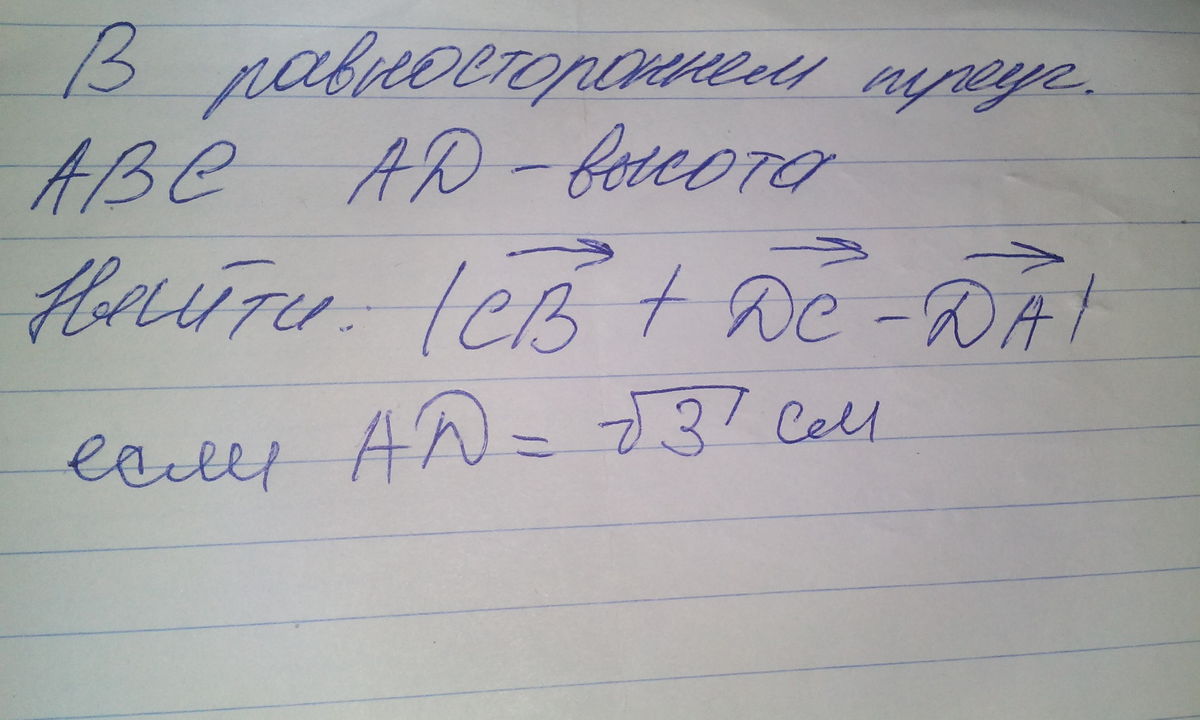 В равностороннем треуг.
ABC AD - высота
Найти: |CB + DC - DA|
если AD = √3 см